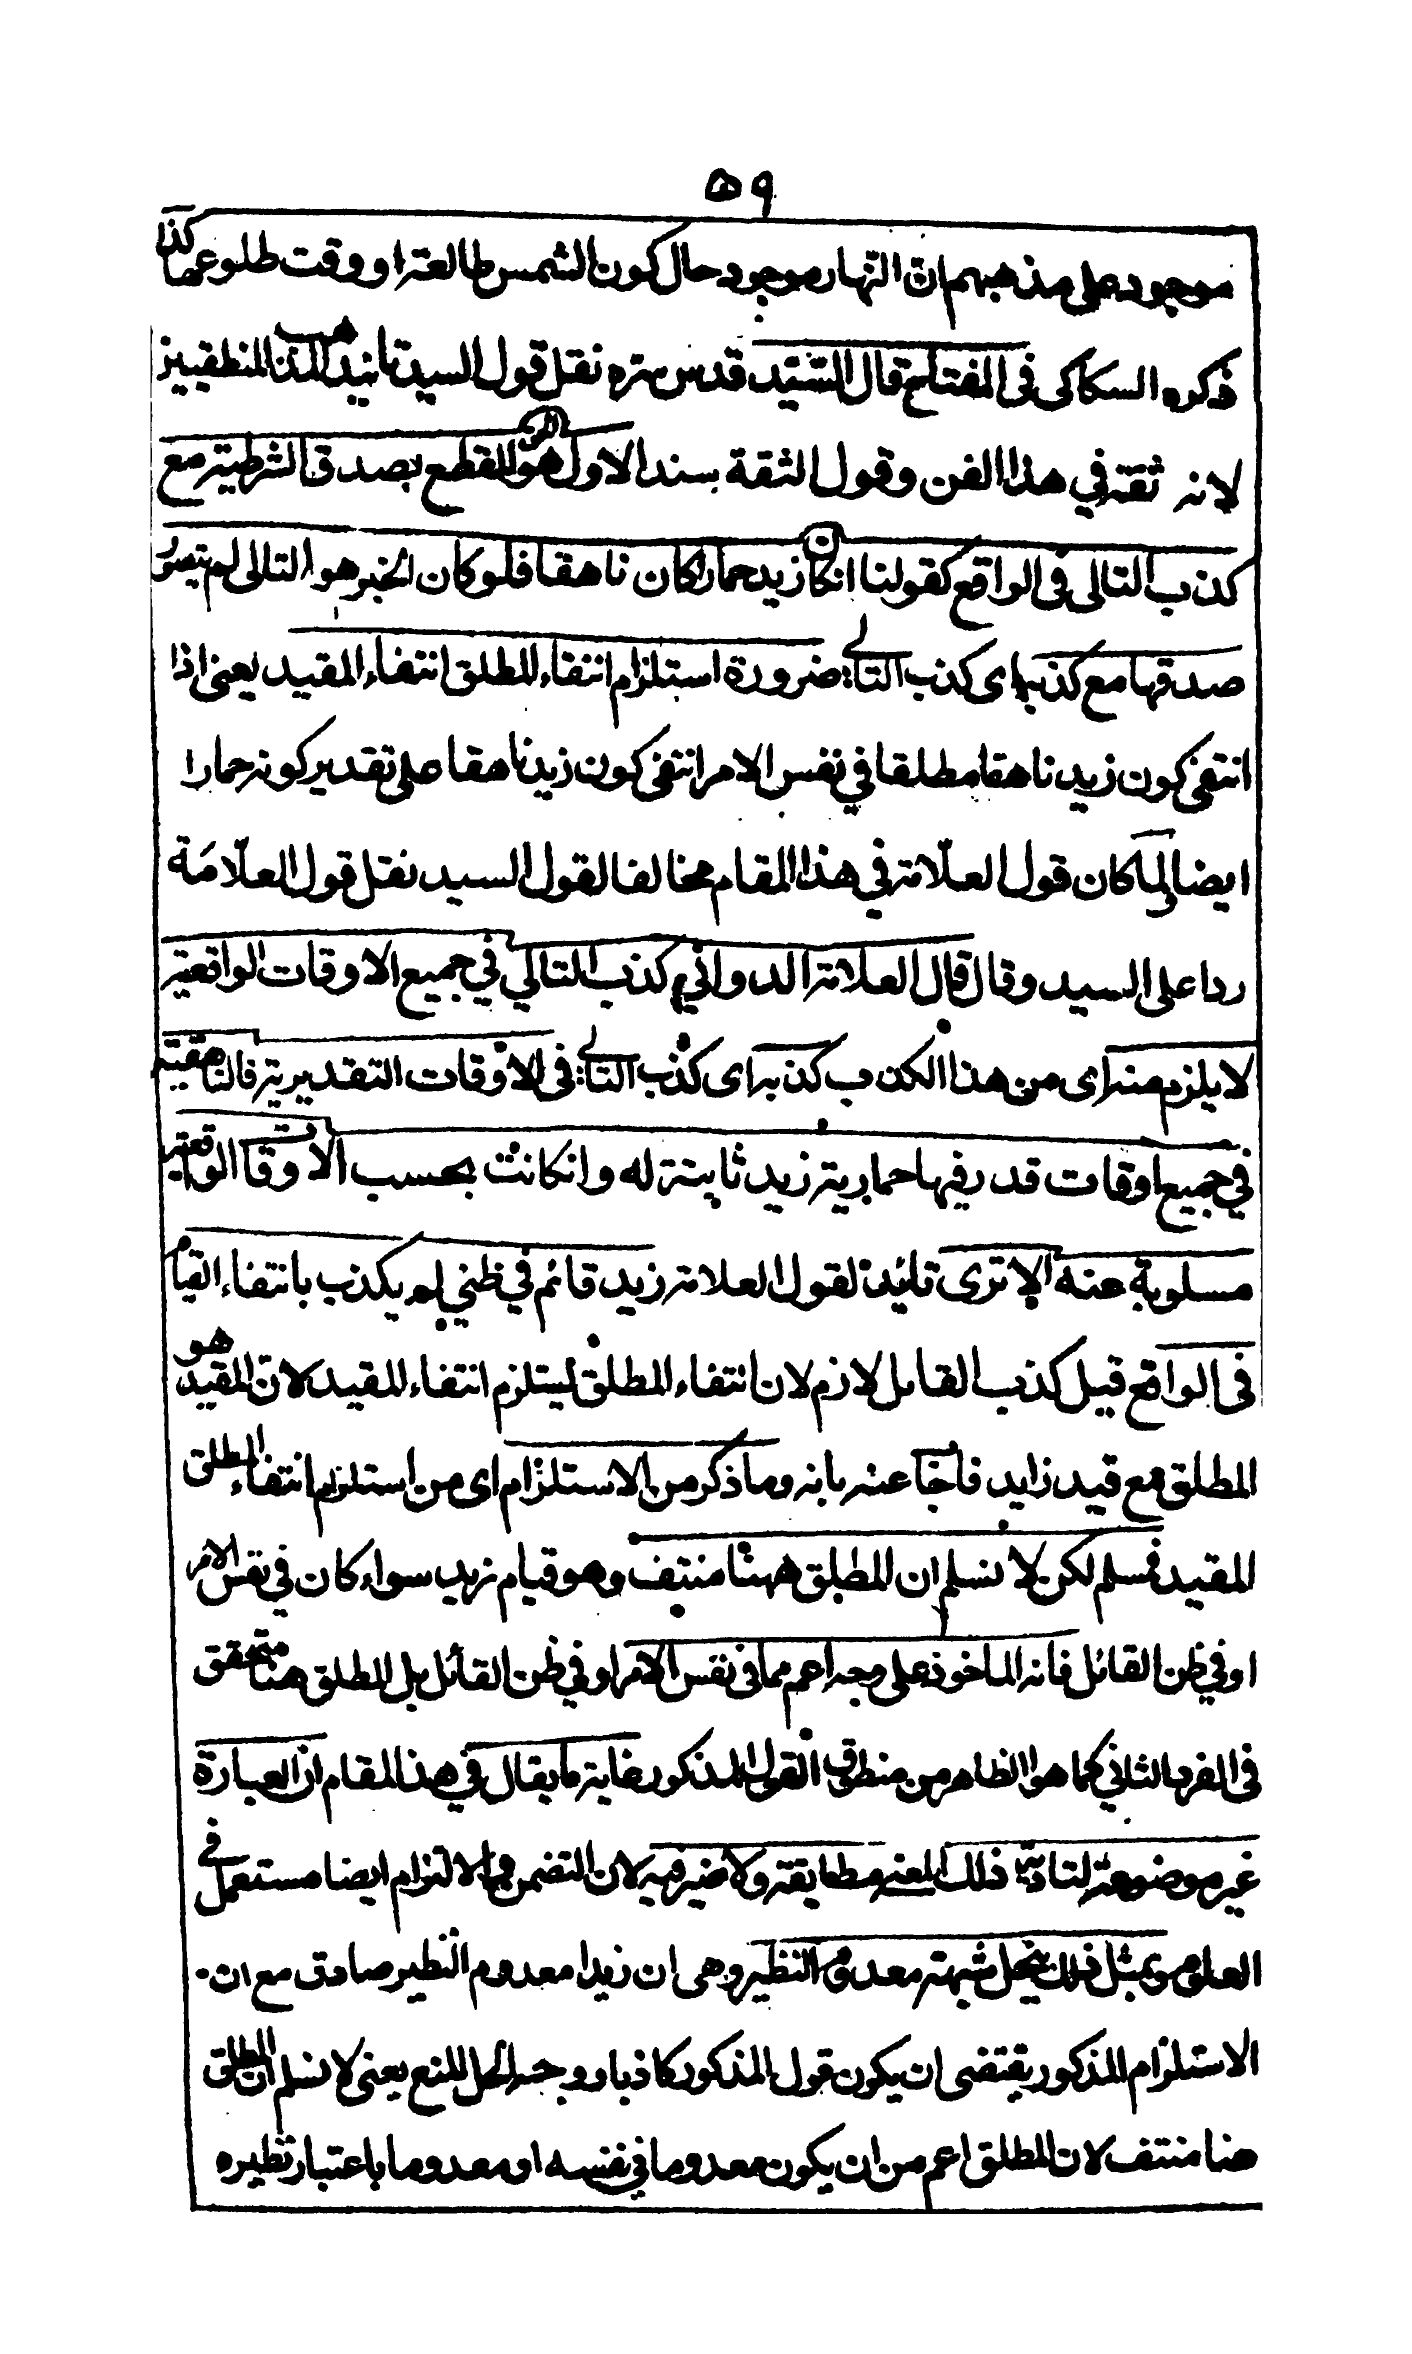 ٥٩
موجود على مذهبهم ان النهار موجود حال كون الشمس طالعة او وقت طلوعها كذا
ذكره السكاكى فى المفتاح قال السيد قدس سره نقل قول السيد تائيد المذهب المنطقيين
لانه ثقة في هذا الفن وقول الثقة سند الاول هو الحق للقطع بصدق الشرطية مع
كذب التالى فى الواقع كقولنا انكان زيد حمارا كان ناهقا فلو كان الخبر هو التالى لم يتصور
صدقها مع كذبها اى كذب التالي ضرورة استلزام انتفاء المطلق انتفاء المقيد يعنى اذا
انتفى كون زيد ناهقا مطلقا في نفس الامر انتفى كون زيد ناهقا على تقدير كونه حمارا
ايضا ولما كان قول العلامة في هذا المقام مخالفا لقول السيد نقل قول العلامة
ردا على السيد وقال قال العلامة الدواني كذب التالي في جميع الاوقات الواقعية
لا يلزم منه اى من هذا الكذب كذبه اى كذب التالي فى الاوقات التقديرية فالناهقية
في جميع اوقات قدر فيها حمارية زيد ثابتة له وانكانت بحسب الاوقات الواقعية
مسلوبة عنه الا ترى تائيد لقول العلامة زيد قائم في ظني لم يكذب بانتفاء القيام
فى الواقع قيل كذب القائل لازم لان انتفاء المطلق يستلزم انتفاء المقيد لان المقيد هو
المطلق مع قيد زايد فاجاب عنه بانه وما ذكر من الاستلزام اى من استلزام انتفاء المطلق
المقيد فمسلم لكن لا نسلم ان المطلق ههنا منتف وهو قيام زيد سواء كان في نفس الامر
او في ظن القائل فانه الماخوذ على وجه اعم مما فى نفس الامر او في ظن القائل بل المطلق هنا متحقق
فى الفرد الثاني كما هو الظاهر من منطوق القول المذكور غاية ما يقال في هذا المقام ان العبارة
غير موضوعة لتادية ذلك المعنى مطابقة ولا ضير فيه لان التضمن والالتزام ايضا مستعمل في
العلوم وبمثل ذلك ينحل شبهة معدوم النظير وهى ان زيدا معدوم النظير صادق مع ان
الاستلزام المذكور يقتضى ان يكون قول المذكور كاذبا ووجه الحل المنع يعنى لا نسلم ان المطلق
هنا منتف لان المطلق اعم من ان يكون معدوما في نفسه او معدوما باعتبار نظيره